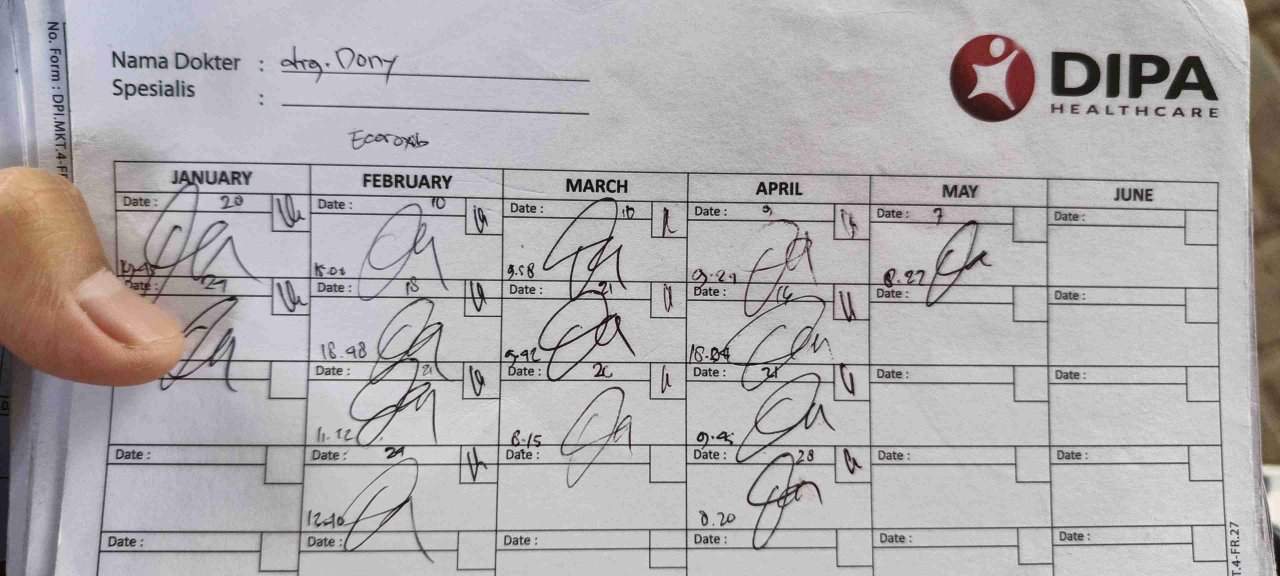 No. Form : DPI.MKT.4-FR
Nama Dokter : drg. Dony
Spesialis :
DIPA
HEALTHCARE
JANUARY FEBRUARY MARCH APRIL MAY JUNE
Date : 20 Date : 10 Date : 10 Date : 9 Date : 7 Date :
9.58 9.27 8.27
Date : Date : 18 Date : 21 Date : 16 Date : Date :
18.48 9.42
Date : 21 Date : Date : 21 Date : Date :
11.12 8.15 9.45
Date : Date : 29 Date : Date : 28 Date : Date :
12.10 8.20
Date : Date : Date : Date : Date : Date :
T.4-FR.27